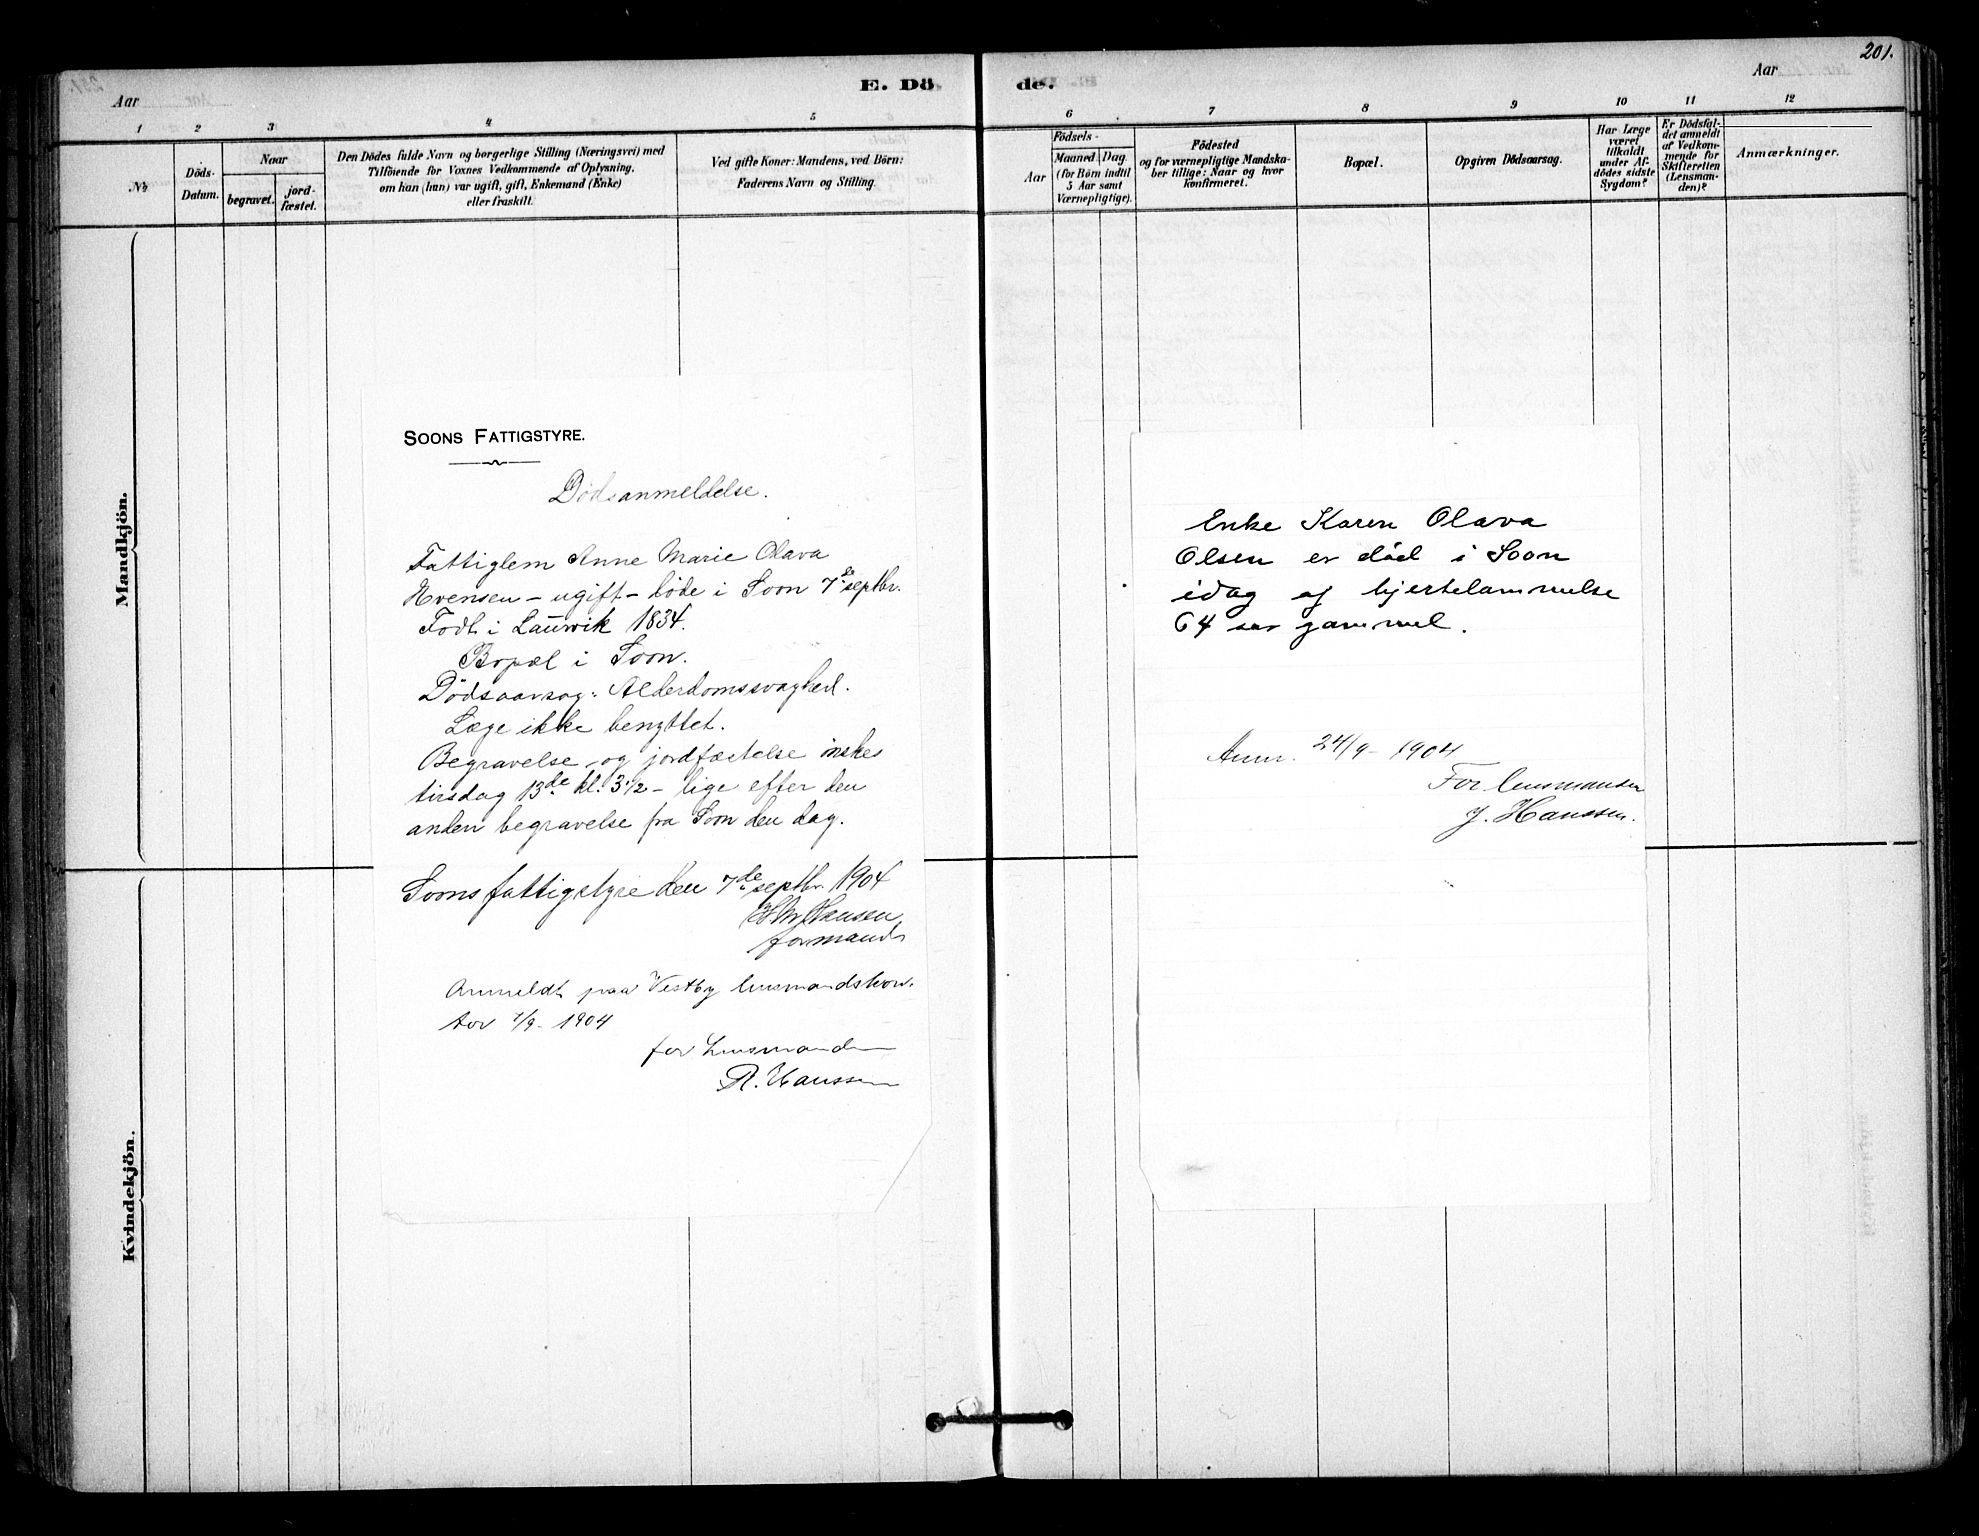 201.
E. Dö
de.
Aar
Aar
1
2
3
4
5
6
7
8
9
10
11
12
No
Döds-
Datum.
Naar
begravet.
jord-
fæstet.
Den Dödes fulde Navn og borgerlige Stilling (Næringsvei) med
Tilföiende for Voxnes Vedkommende af Oplysning,
om han (hun) var ugift, gift, Enkemand (Enke)
eller fraskilt.
Ved gifte Koner: Mandens, ved Börn:
Faderens Navn og Stilling.
Födsels-
Aar
Maaned.
Dag.
(for Börn indtil
5 Aar samt
Værnepligtige).
Födested
og for værnepligtige Mandska-
ber tillige: Naar og hvor
konfirmeret.
Bopæl.
Opgiven Dödsaarsag.
Har Læge
været
tilkaldt
under Af-
dödes sidste
Sygdom?
Er Dödsfal-
det anmeldt
af Vedkom-
mende for
Skifteretten
(Lensman-
den)?
Anmærkninger.
Mandkjön.
Kvindekjön.
SOONS FATTIGSTYRE.
Dödsanmeldelse.
Fattiglem Anne Marie Olava
Evensen – ugift – døde i Soon 7de septbr.
Født i Laurvik 1834.
Bopæl i Soon.
Dödsaarsag: Alderdomssvaghed.
Læge ikke benyttet.
Begravelse og jordfæstelse önskes
tirsdag 13de kl. 3 1/2 – lige efter den
anden begravelse fra Soon den dag.
Soons fattigstyre den 7de septbr. 1904
Hansen
formand
Anmeldt paa Vestby lensmandskon-
tor 7/9 - 1904
for Lensmanden
A. Hanssen
Enke Karen Olava
Olsen er död i Soon
idag af hjertelammelse
64 aar gammel.
Anm. 24/9 - 1904
For lensmanden
J. Hanssen.